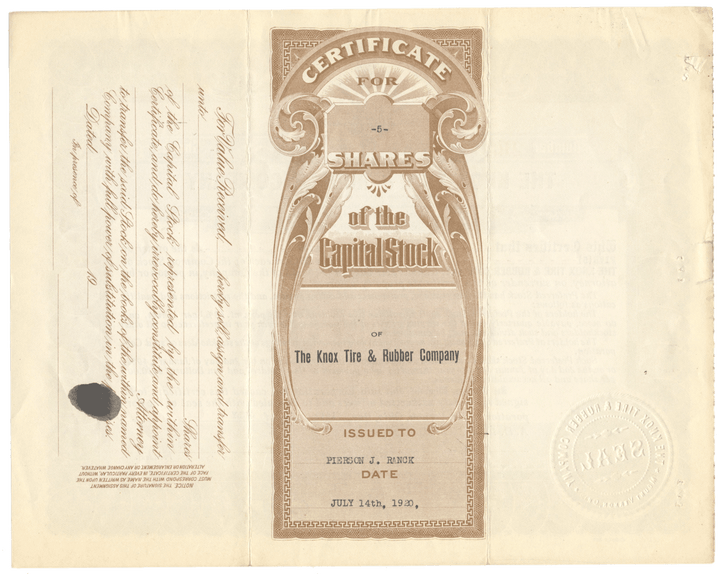 CERTIFICATE
FOR
-5-
SHARES
of the
Capital Stock
OF
The Knox Tire & Rubber Company
ISSUED TO
PIERSON J. RANCK
DATE
JULY 14th, 1920,
For Value Received hereby sell, assign and transfer
unto
Shares
of the Capital Stock represented by the within
Certificate, and do hereby irrevocably constitute and appoint
Attorney
to transfer the said Stock on the books of the within named
Company with full power of substitution in the
Dated 19
In presence of
NOTICE. THE SIGNATURE OF THIS ASSIGNMENT
MUST CORRESPOND WITH THE NAME AS WRITTEN UPON THE
FACE OF THE CERTIFICATE, IN EVERY PARTICULAR, WITHOUT
ALTERATION OR ENLARGEMENT OR ANY CHANGE WHATEVER.
SEAL